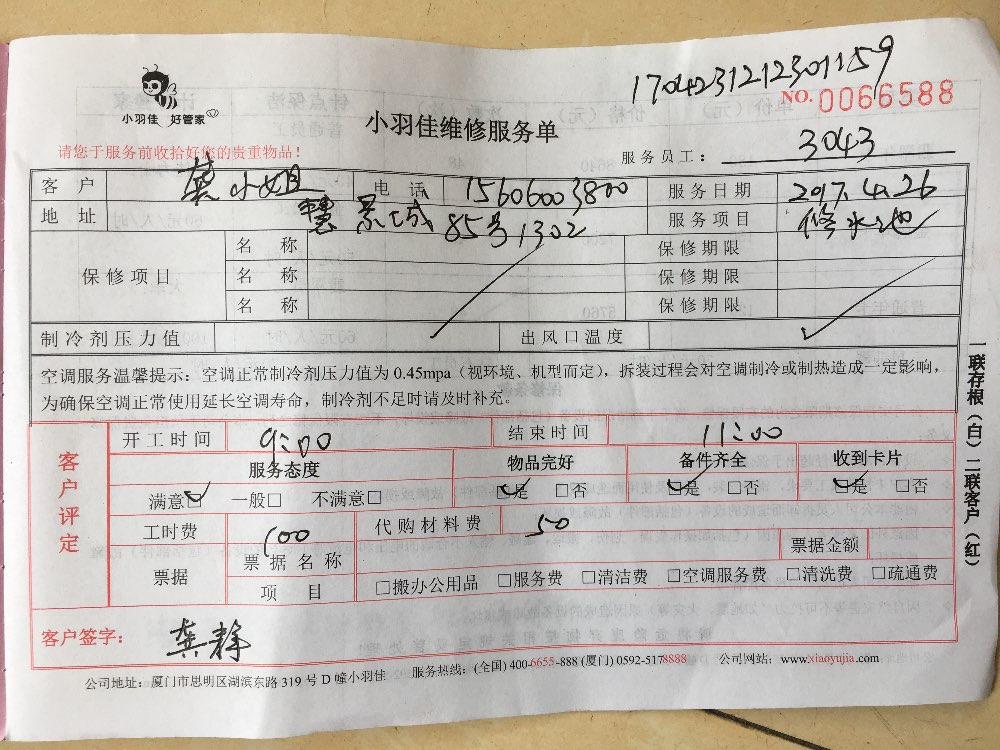 1704231212301159
NO. 0066588
小羽佳 好管家
小羽佳维修服务单
请您于服务前收拾好您的贵重物品！
服务员工： 3043
客户 龚小姐 电话 15606003800 服务日期 2017.4.26
地址 慧景城85号1302 服务项目 修水池
保修项目
名称 保修期限
名称 保修期限
名称 保修期限
制冷剂压力值 出风口温度
空调服务温馨提示：空调正常制冷剂压力值为 0.45mpa（视环境、机型而定），拆装过程会对空调制冷或制热造成一定影响，
为确保空调正常使用延长空调寿命，制冷剂不足时请及时补充。
客户评定
开工时间 9:00 结束时间 11:00
服务态度 物品完好 备件齐全 收到卡片
满意☑ 一般□ 不满意□ ☑是 □否 ☑是 □否 ☑是 □否
工时费 100 代购材料费 50
票据 票据名称 票据金额
项目 □搬办公用品 □服务费 □清洁费 □空调服务费 □清洗费 □疏通费
客户签字： 龚静
公司地址：厦门市思明区湖滨东路 319 号 D 幢小羽佳 服务热线：(全国) 400-6655-888 (厦门) 0592-5178888 公司网站：www.xiaoyujia.com
一联存根（白）二联客户（红）